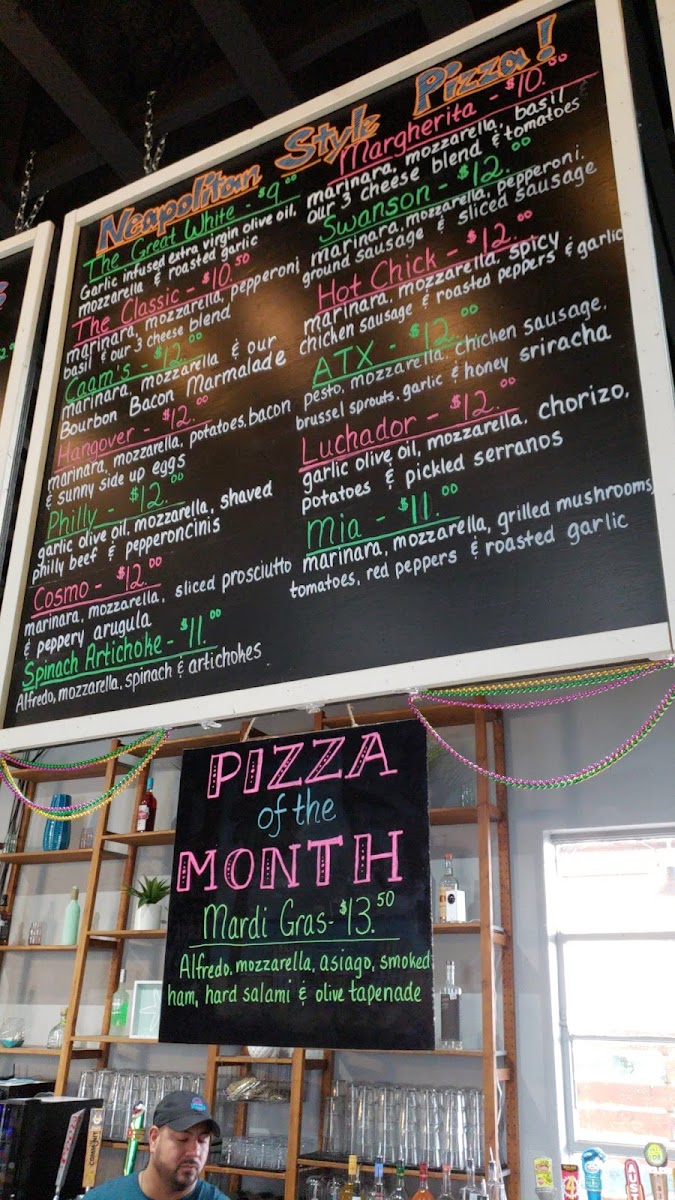 Neapolitan Style Pizza!
The Great White - $9.00
Garlic infused extra virgin olive oil,
mozzarella & roasted garlic
The Classic - $10.50
marinara, mozzarella, pepperoni
basil & our 3 cheese blend
Caam's - $12.00
marinara, mozzarella & our
Bourbon Bacon Marmalade
Hangover - $12.00
marinara, mozzarella, potatoes, bacon
& sunny side up eggs
Philly - $12.00
garlic olive oil, mozzarella, shaved
philly beef & pepperoncinis
Cosmo - $12.00
marinara, mozzarella, sliced prosciutto
& peppery arugula
Spinach Artichoke - $11.00
Alfredo, mozzarella, spinach & artichokes
Margherita - $10.00
marinara, mozzarella, basil
our 3 cheese blend & tomatoes
Swanson - $12.00
marinara, mozzarella, pepperoni,
ground sausage & sliced sausage
Hot Chick - $12.00
marinara, mozzarella, spicy
chicken sausage & roasted peppers & garlic
ATX - $12.00
pesto, mozzarella, chicken sausage,
brussel sprouts, garlic & honey sriracha
Luchador - $12.00
garlic olive oil, mozzarella, chorizo,
potatoes & pickled serranos
Mia - $11.00
marinara, mozzarella, grilled mushrooms,
tomatoes, red peppers & roasted garlic
PIZZA
of the
MONTH
Mardi Gras - $13.50
Alfredo, mozzarella, asiago, smoked
ham, hard salami & olive tapenade